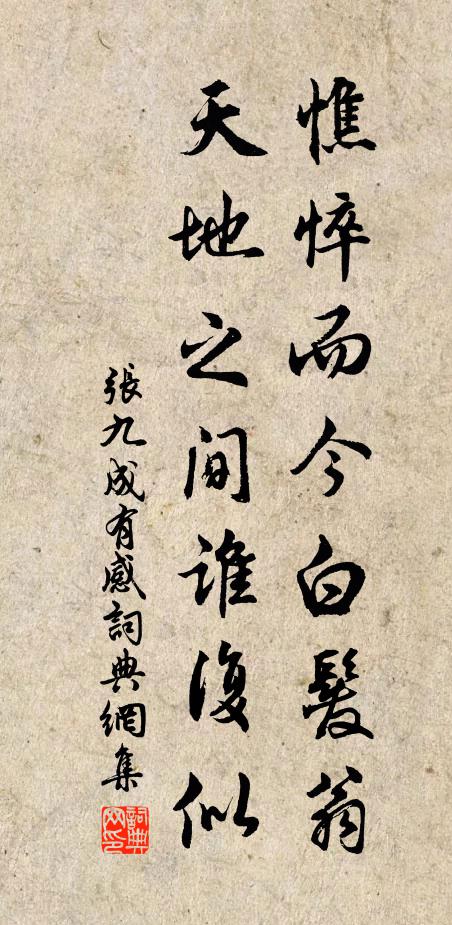 憔悴而今白髮翁
天地之間誰復似
張九成有感詞典網集
詞典網印